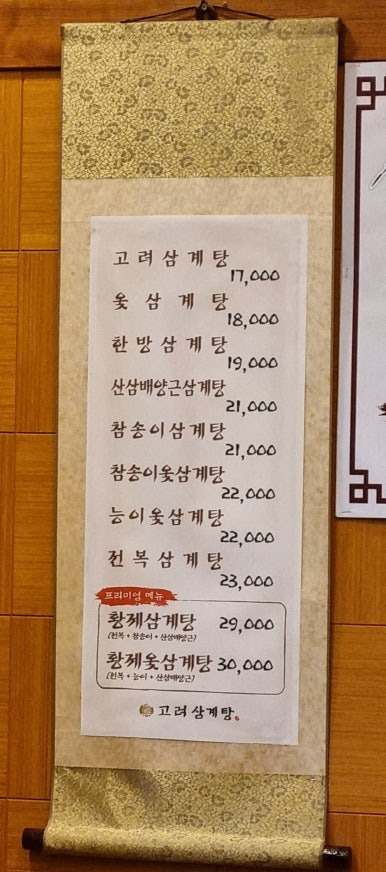 고려삼계탕
17,000
옻삼계탕
18,000
한방삼계탕
19,000
산삼배양근삼계탕
21,000
참송이삼계탕
21,000
참송이옻삼계탕
22,000
능이옻삼계탕
22,000
전복삼계탕
23,000
프리미엄 메뉴
황제삼계탕 29,000
[전복 + 참송이 + 산삼배양근]
황제옻삼계탕 30,000
[전복 + 능이 + 산삼배양근]
고려삼계탕